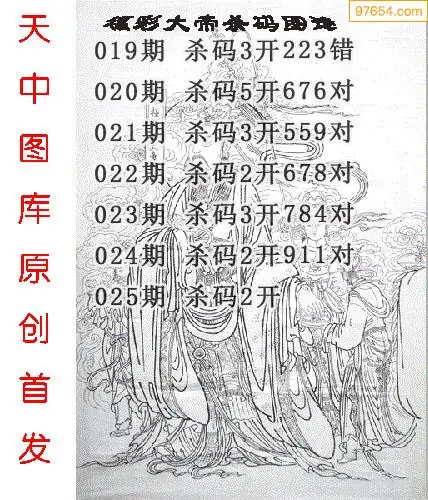 97654.com
福彩大帝杀码图迷
019期 杀码3开223错
020期 杀码5开676对
021期 杀码3开559对
022期 杀码2开678对
023期 杀码3开784对
024期 杀码2开911对
025期 杀码2开
天中图库原创首发